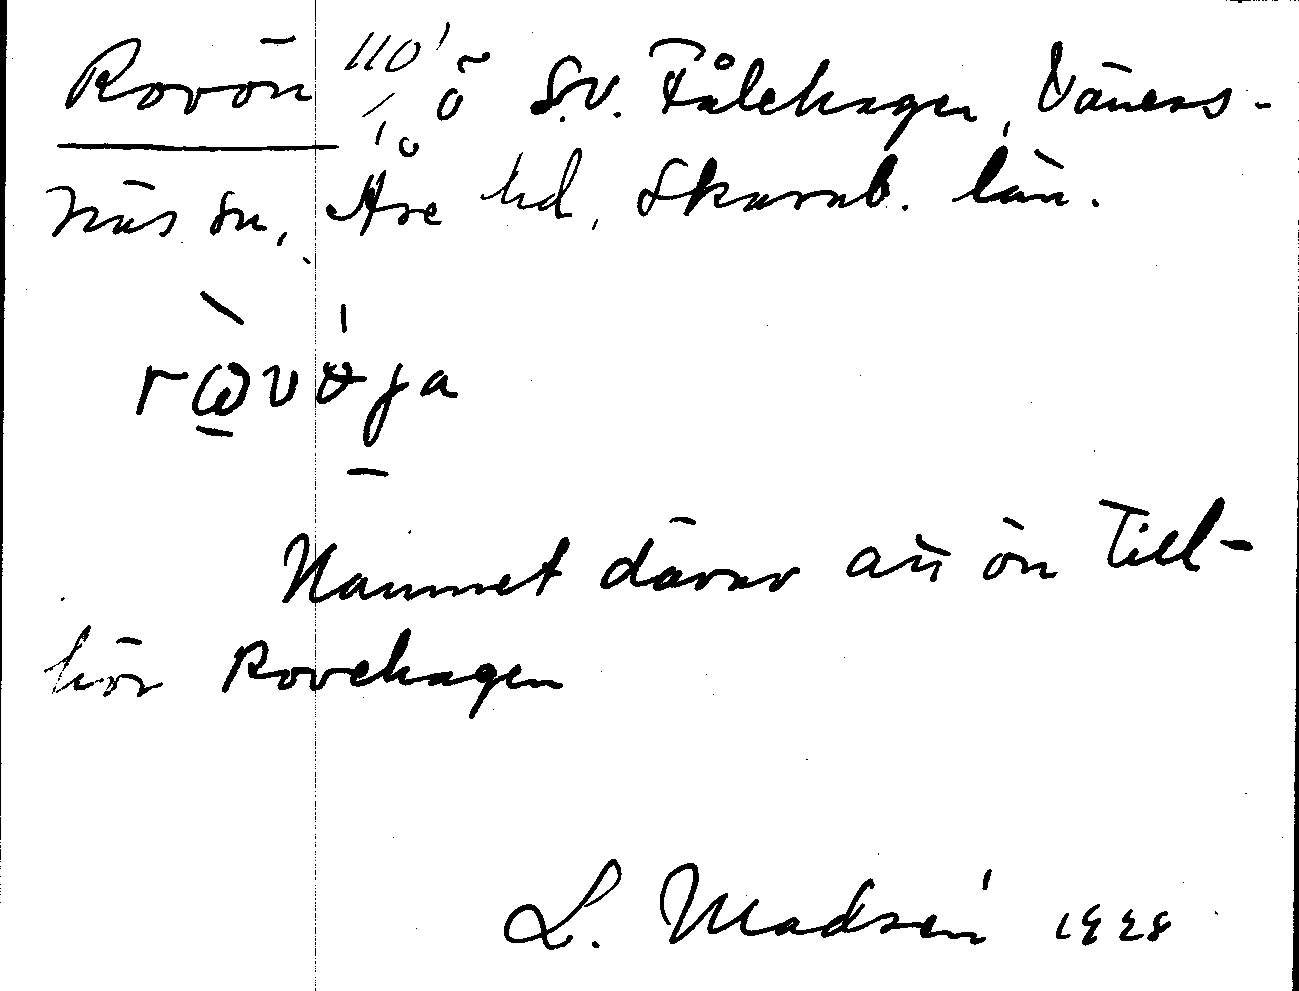 Rovön 110' ö S.V. Fålehagen, Väners-
näs sn, Åse hd, Skarab. län.
rὼ̲vɵ́ja
Namnet därav att ön till-
hör Rovehagen
L. Madsén 1928